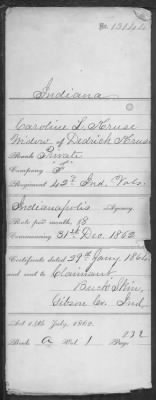 No. 13144
Indiana
Caroline L. Kruse
Widow of Dedrick Kruse
Rank Private
Company F
Regiment 42d Ind. Vols.
Indianapolis Agency
Rate per month, $8
Commencing 31st Dec. 1862
Certificate dated 29th Jany 1864
and sent to Claimant
Buck Skin,
Gibson Co. Ind
Act 14th July, 1862.
Book A Vol 1 Page 132